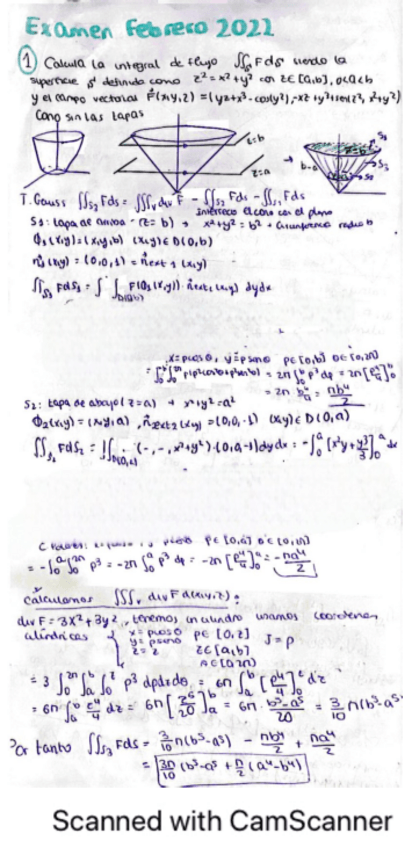 Examen Febrero 2022
① Calcula la integral de flujo ∬ₛ F dS siendo la
superficie S definida como z² = x² + y² con z ∈ [a,b], 0<a<b
y el campo vectorial F(x,y,z) = (yz + x³ - cos(y²), -xz + y³ + sen(z²), x² + y²)
Cono sin las tapas
z=b
z=a
T. Gauss ∬S₃ F dS = ∭ᵥ div F - ∬S₂ F dS - ∬S₁ F dS
intersección el cono con el plano
S₁: tapa de arriba (z=b) → x² + y² = b² → circunferencia radio b
Φ₁(x,y) = (x,y,b) (x,y) ∈ D(0,b)
n₁(x,y) = (0,0,1) = n ext₁(x,y)
∬ F dS₁ = ∫∫D(0,b) F(Φ₁(x,y)) · n ext₁(x,y) dy dx
x = ρcosθ, y = ρsenθ ρ ∈ [0,b] θ ∈ [0,2π]
= 2π ∫₀ᵇ ρ³ dρ = 2π [ρ⁴/4]₀ᵇ
= 2π b⁴/4 = πb⁴/2
S₂: tapa de abajo (z=a) → x² + y² = a²
Φ₂(x,y) = (x,y,a), n ext₂(x,y) = (0,0,-1) (x,y) ∈ D(0,a)
∬S₂ F dS₂ = ∬D(0,a) (-,-,x²+y²)·(0,0,-1) dy dx = -∫₀ᵃ [x²y + y³/3]₀ᵃ dx
ρ ∈ [0,a] θ ∈ [0,2π]
= -∫₀ᵃ ∫₀²π ρ³ = -2π ∫₀ᵃ ρ³ dρ = -2π [ρ⁴/4]₀ᵃ = -πa⁴/2
Calculamos ∭ᵥ div F d(x,y,z):
div F = 3x² + 3y², tenemos un cilindro usamos coordenadas
cilíndricas { x = ρcosθ ρ ∈ [0,z] J = ρ
y = ρsenθ z ∈ [a,b]
z = z θ ∈ [0,2π]
= 3 ∫₀²π ∫ₐᵇ ∫₀ᶻ ρ³ dρ dz dθ = 6π ∫ₐᵇ [ρ⁴/4]₀ᶻ dz
= 6π ∫ₐᵇ z⁴/4 dz = 6π [z⁵/20]ₐᵇ = 6π · (b⁵-a⁵)/20 = 3/10 π(b⁵-a⁵)
Por tanto ∬S₃ F dS = 3/10 π(b⁵-a⁵) - πb⁴/2 + πa⁴/2
= 3π/10 (b⁵-a⁵ + π/2 (a⁴-b⁴)
Scanned with CamScanner